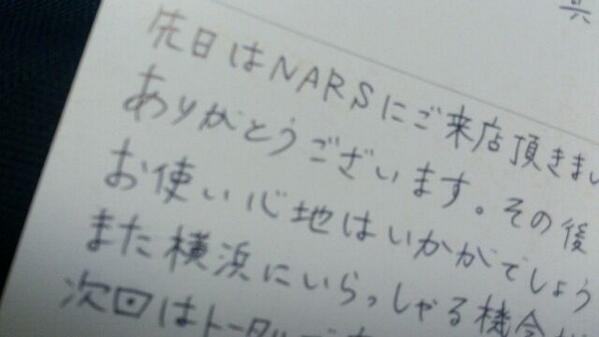 先日はNARSにご来店頂きまし
ありがとうございます。その後
お使い心地はいかがでしょう
また横浜にいらっしゃる機会が
次回はトータル